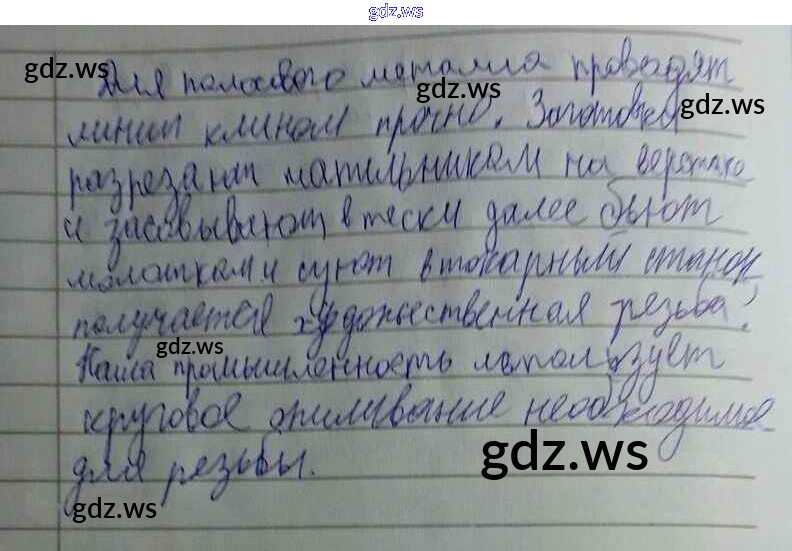 gdz.ws
Для полосового металла проводят
линии клином прочно. Заготовка
разрезают напильником на верстаке
и засовывают в тиски далее бьют
молотком и суют в токарный станок
получается художественная резьба!
Наша промышленность использует
круговое опиливание необходимое
для резьбы.
gdz.ws
gdz.ws
gdz.ws
gdz.ws
gdz.ws
gdz.ws